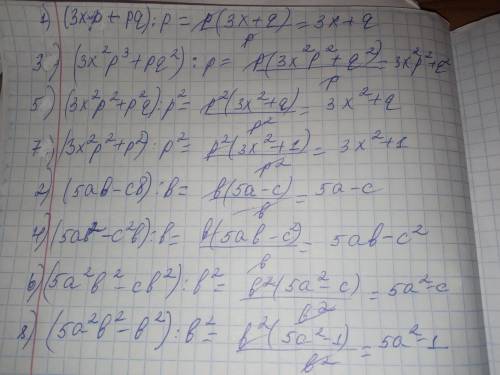 1) (3xp + pq) : p = p(3x+q)/p = 3x+q
3) (3x²p³ + pq²) : p = p(3x²p² + q²)/p = 3x²p²+q²
5) (3x²p²+p²q) : p² = p²(3x²+q)/p² = 3x²+q
7) (3x²p²+p²) : p² = p²(3x²+1)/p² = 3x²+1
2) (5ab-cb) : b = b(5a-c)/b = 5a-c
4) (5ab²-c²b) : b = b(5ab-c²)/b = 5ab-c²
6) (5a²b²-cb²) : b² = b²(5a²-c)/b² = 5a²-c
8) (5a²b²-b²) : b² = b²(5a²-1)/b² = 5a²-1